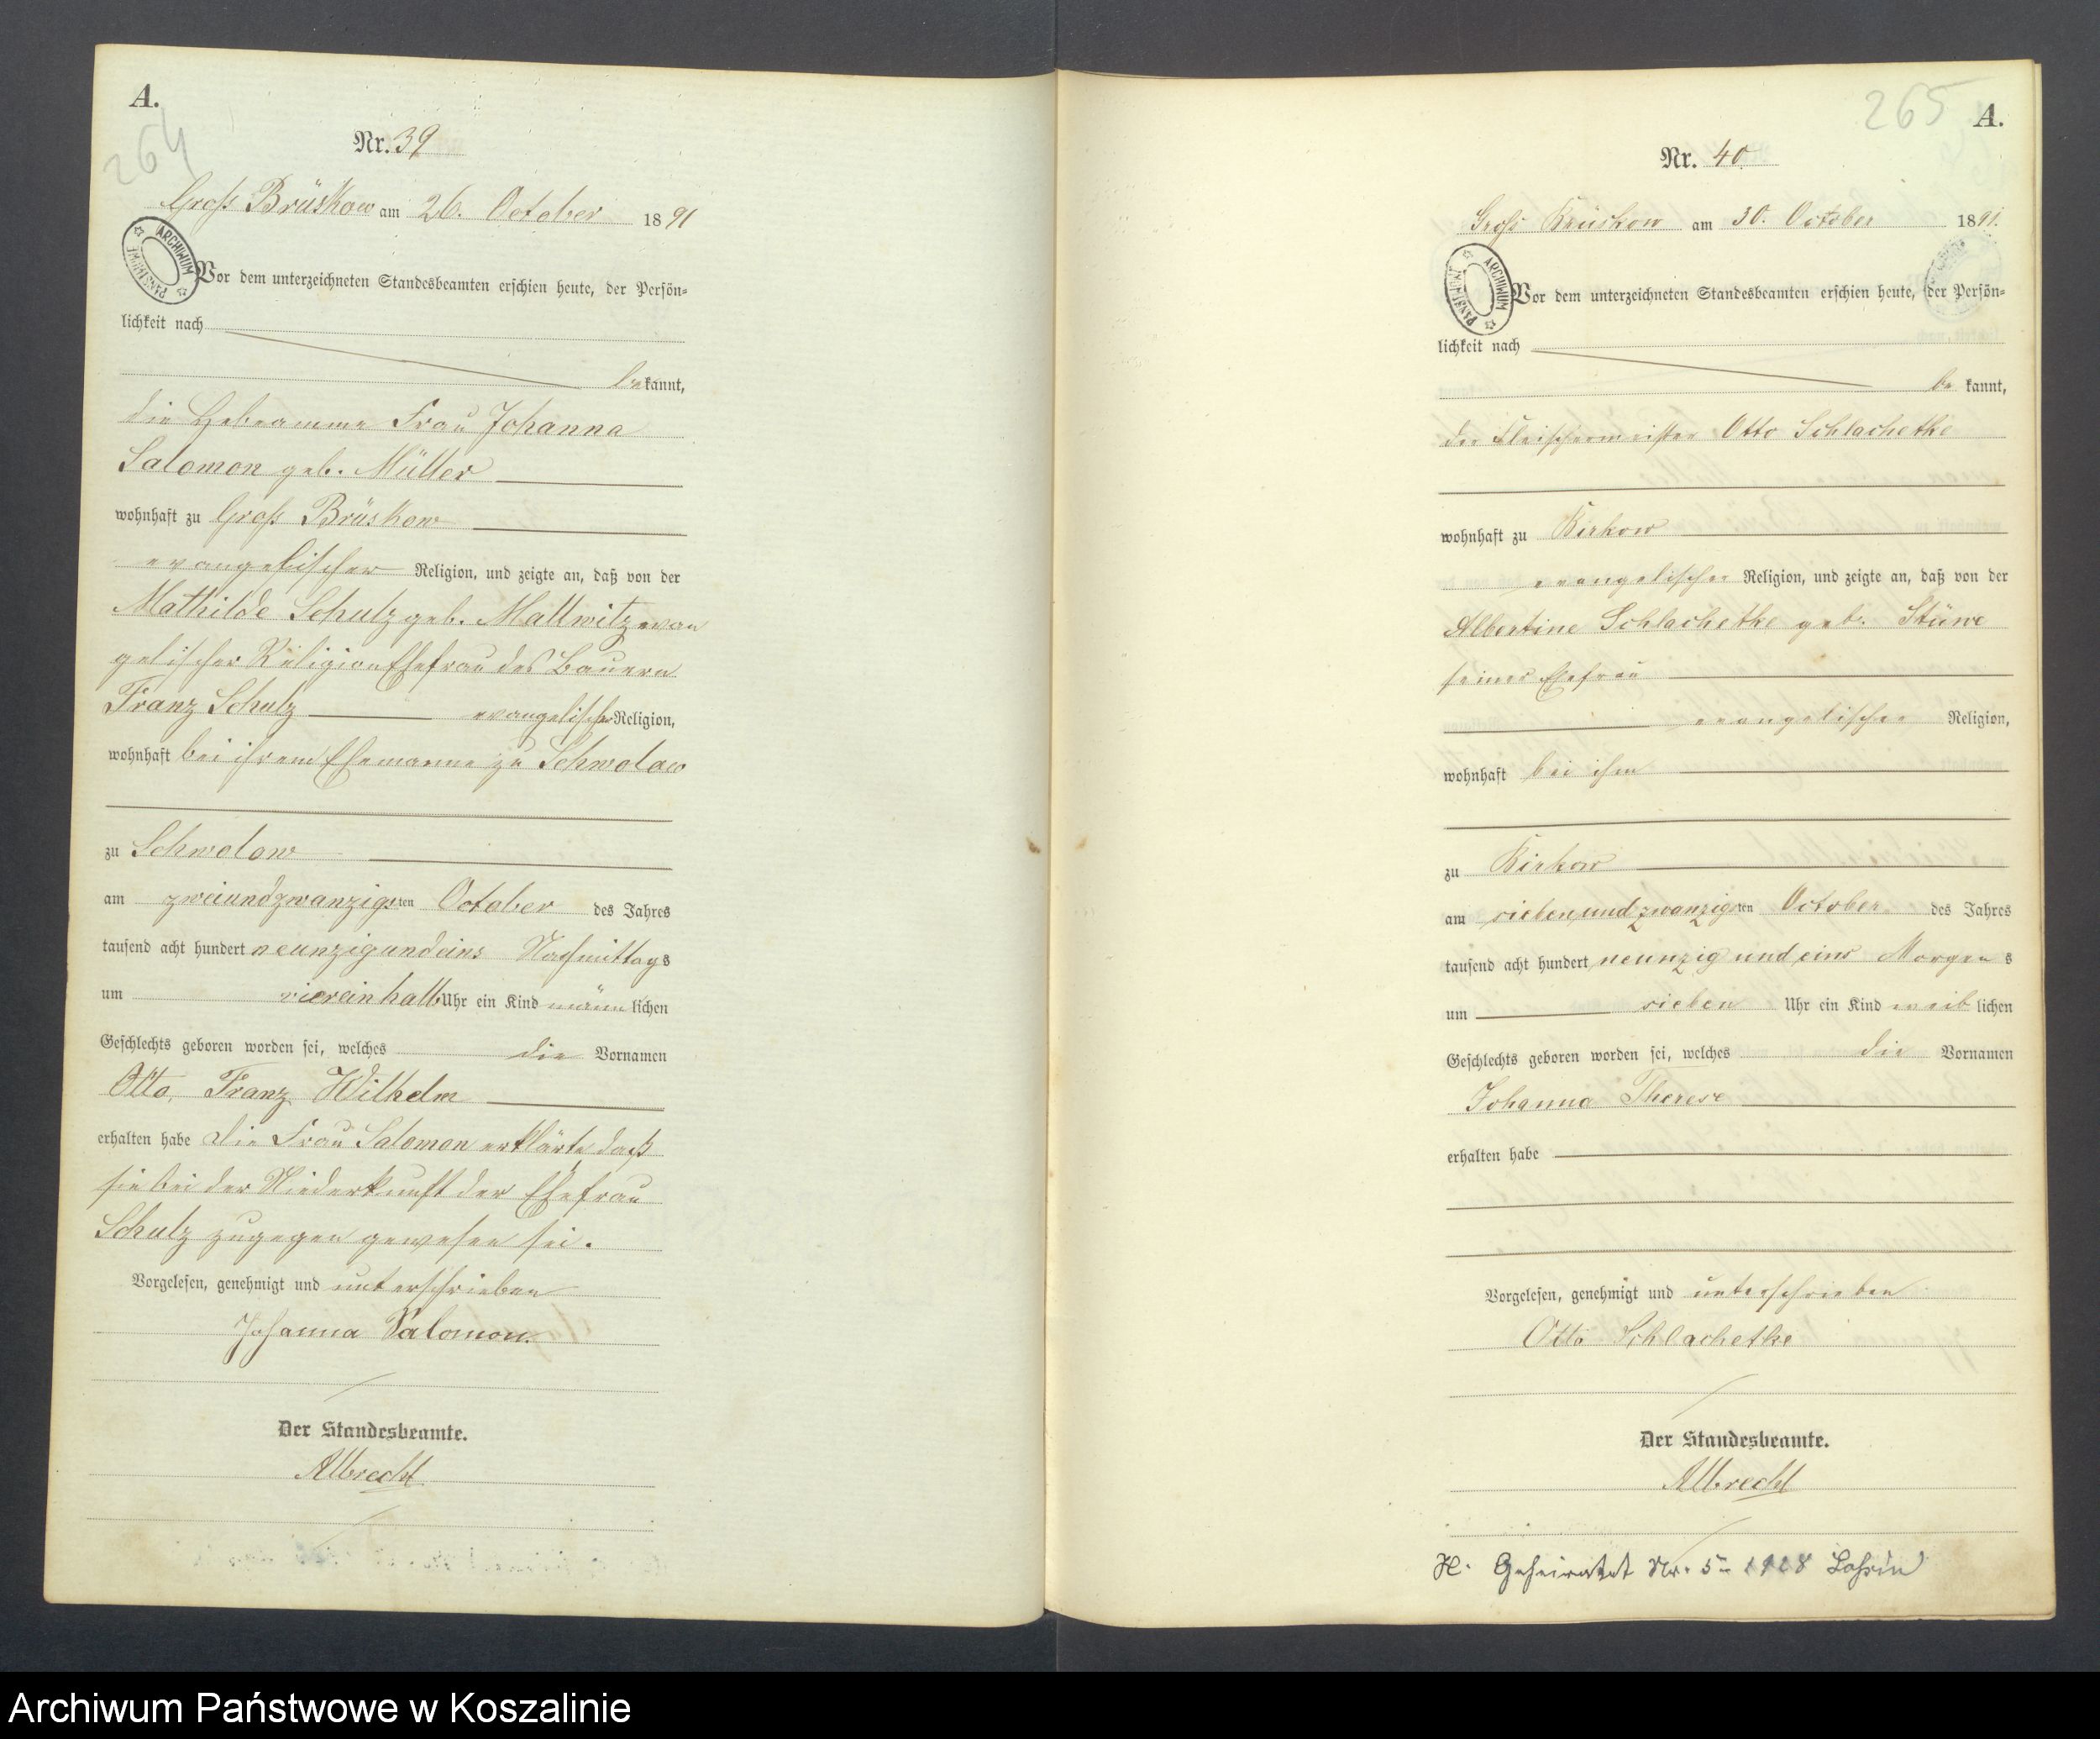 A.
264
Nr. 39
Groß Brüskow am 26. October 1891
ARCHIWUM PAŃSTWOWE
Vor dem unterzeichneten Standesbeamten erschien heute, der Persön-
lichkeit nach
bekannt,
die Hebeamme Frau Johanna
Salomon geb. Müller
wohnhaft zu Groß Brüskow
evangelischer Religion, und zeigte an, daß von der
Mathilde Schulz geb. Mallwitz evan
gelischer Religion Ehefrau des Bauern
Franz Schulz evangelischer Religion,
wohnhaft bei ihrem Ehemanne zu Schwolow
zu Schwolow
am zweiundzwanzigsten October des Jahres
tausend acht hundert neunzigundeins Nachmittags
um viereinhalb Uhr ein Kind männlichen
Geschlechts geboren worden sei, welches die Vornamen
Otto, Franz Wilhelm
erhalten habe Die Frau Salomon erklärte daß
sie bei der Niederkunft der Ehefrau
Schulz zugegen gewesen sei.
Vorgelesen, genehmigt und unterschrieben
Johanna Salomon.
Der Standesbeamte.
Albrecht
265
A.
Nr. 40
Groß Brüskow am 30. October 1891.
ARCHIWUM PAŃSTWOWE
Vor dem unterzeichneten Standesbeamten erschien heute, der Persön-
lichkeit nach
bekannt,
der Fleischermeister Otto Schlachetke
wohnhaft zu Birkow
evangelischer Religion, und zeigte an, daß von der
Albertine Schlachetke geb. Stüwe
seiner Ehefrau
evangelischer Religion,
wohnhaft bei ihm
zu Birkow
am siebenundzwanzigsten October des Jahres
tausend acht hundert neunzig und eins Morgens
um sieben Uhr ein Kind weiblichen
Geschlechts geboren worden sei, welches die Vornamen
Johanna Therese
erhalten habe
Vorgelesen, genehmigt und unterschrieben
Otto Schlachetke
Der Standesbeamte.
Albrecht
H. Geheiratet Nr. 5 1928
Archiwum Państwowe w Koszalinie